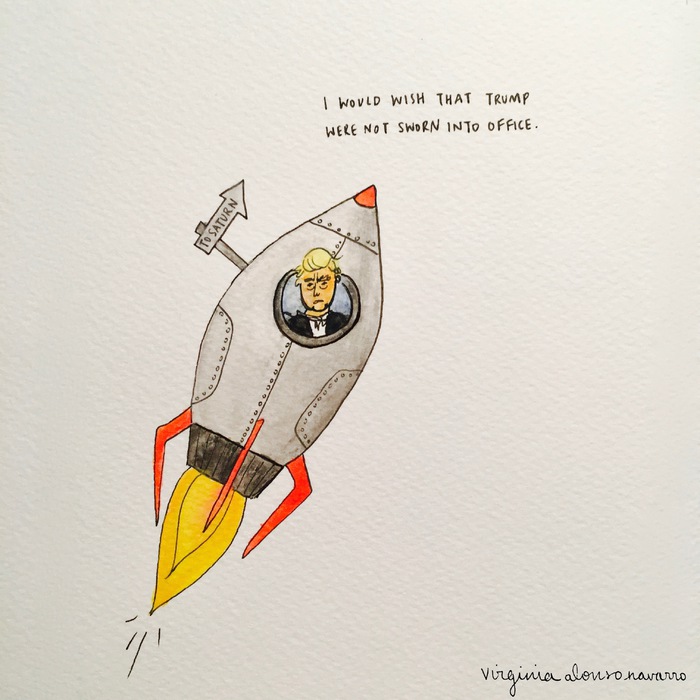 I WOULD WISH THAT TRUMP
WERE NOT SWORN INTO OFFICE.
TO SATURN
virginia alonso navarro